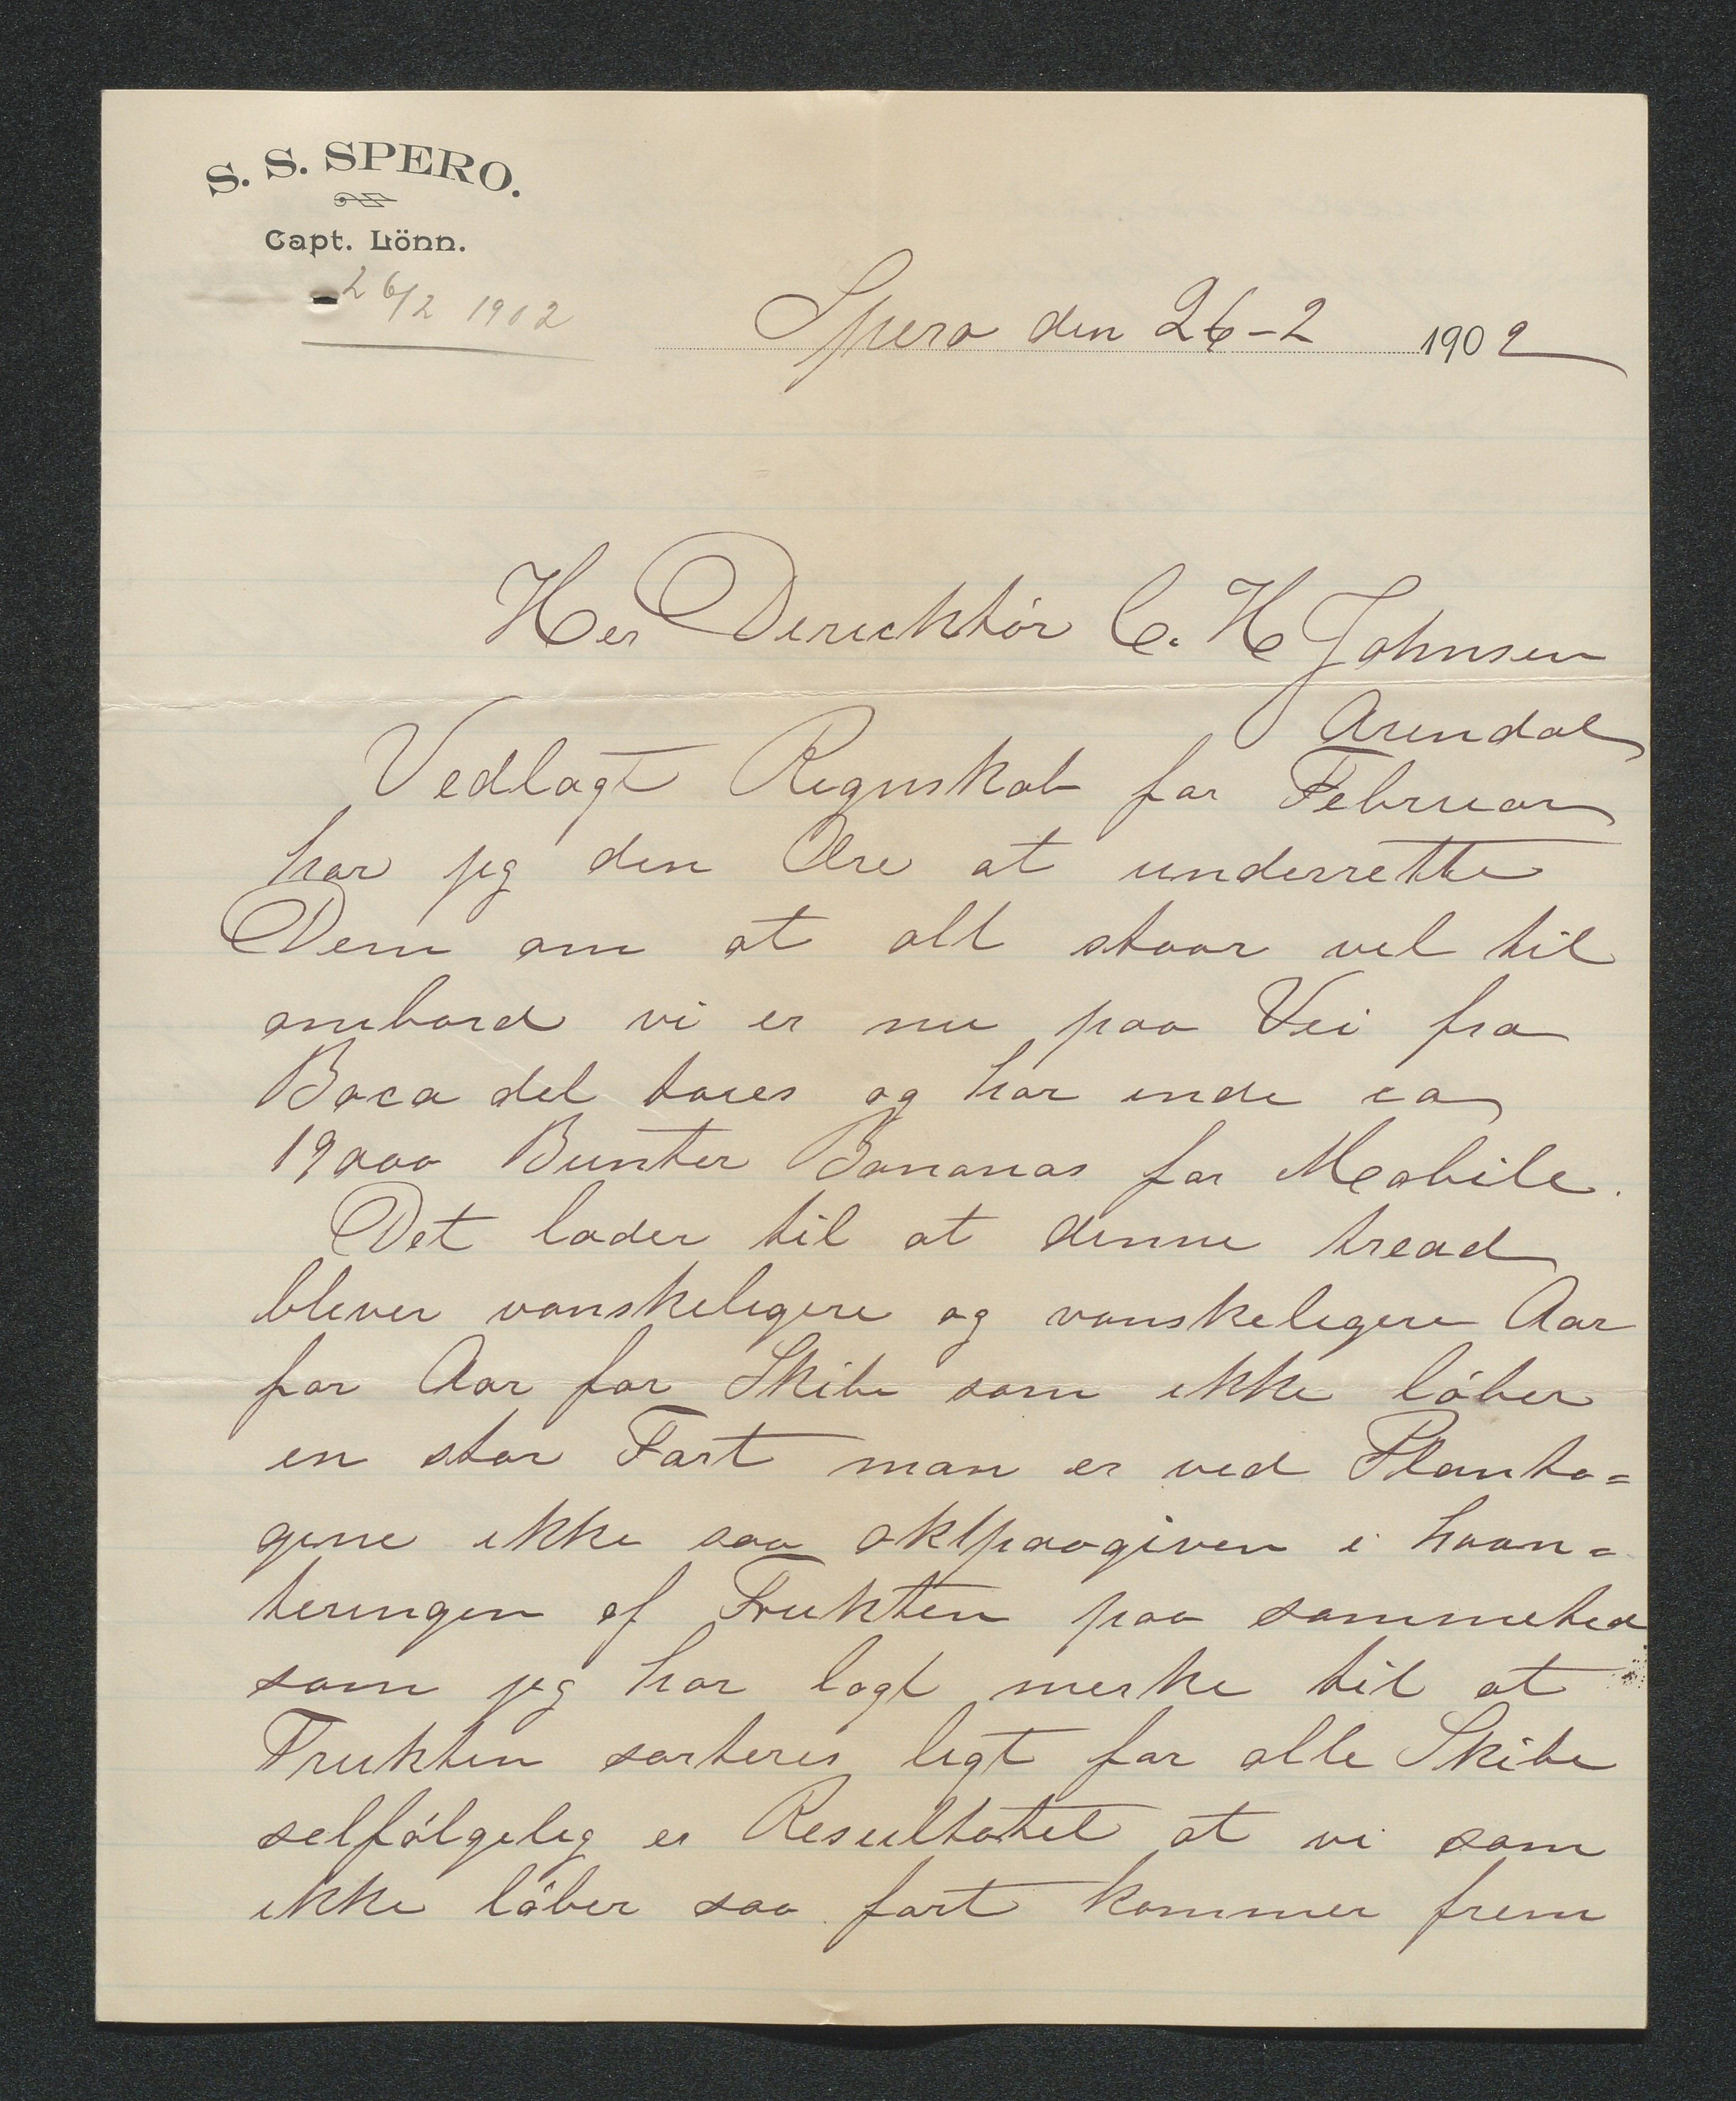 S. S. SPERO.
Capt. Lönn.
26/2 1902
Spero den 26-2 1902
Her Dericktör C. H Johnsen
Arendal
Vedlagt Regnskab for Februar
har jeg den Ære at underrette
Dem om at alt staar vel til
ombord vi er nu paa Vei fra
Boca del tores og har inde ca
19000 Bunter Bananas for Mobile.
Det lader til at denne tread
blever vanskeligere og vanskeligere Aar
for Aar for Skibe som ikke löber
en stor Fart man er ved Planta=
gene ikke saa aktpaagiven i haan=
teringen af Frukten paa sammetid
som jeg har lagt merke til at
Frukten sorteres ligt for alle Skibe
selfölgelig er Resultatet at vi som
ikke löber saa fort kommer frem